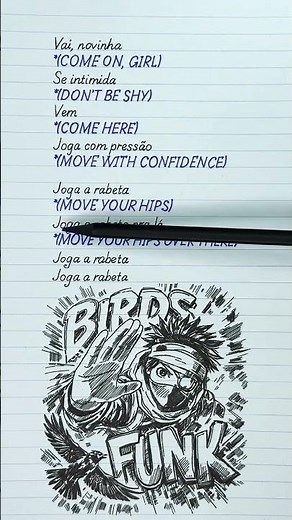 Vai, novinha
*(COME ON, GIRL)
Se intimida
*(DON'T BE SHY)
Vem
*(COME HERE)
Joga com pressão
*(MOVE WITH CONFIDENCE)
Joga a rabeta
*(MOVE YOUR HIPS)
Joga a rabeta pra lá
*(MOVE YOUR HIPS OVER THERE)
Joga a rabeta
Joga a rabeta
BIRDS
FUNK